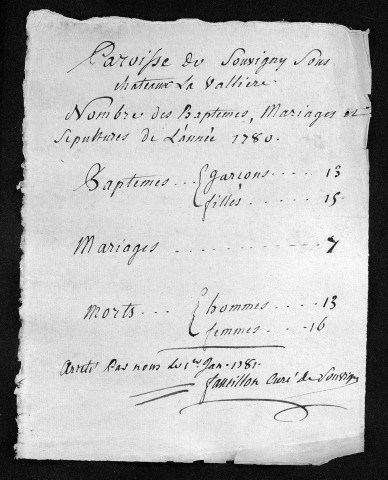 Paroisse de Souvigny Sous
chateaux La Valliere
Nombre des Baptemes, Mariages et
Sepultures de L'année 1780.
Baptemes... { garçons.... 13
filles...... 15.
Mariages........... 7
Morts... { hommes.... 13
femmes... 16
Arreté Par nous Le 1er Jan. 1781.
fauvillon Curé de Souvigny